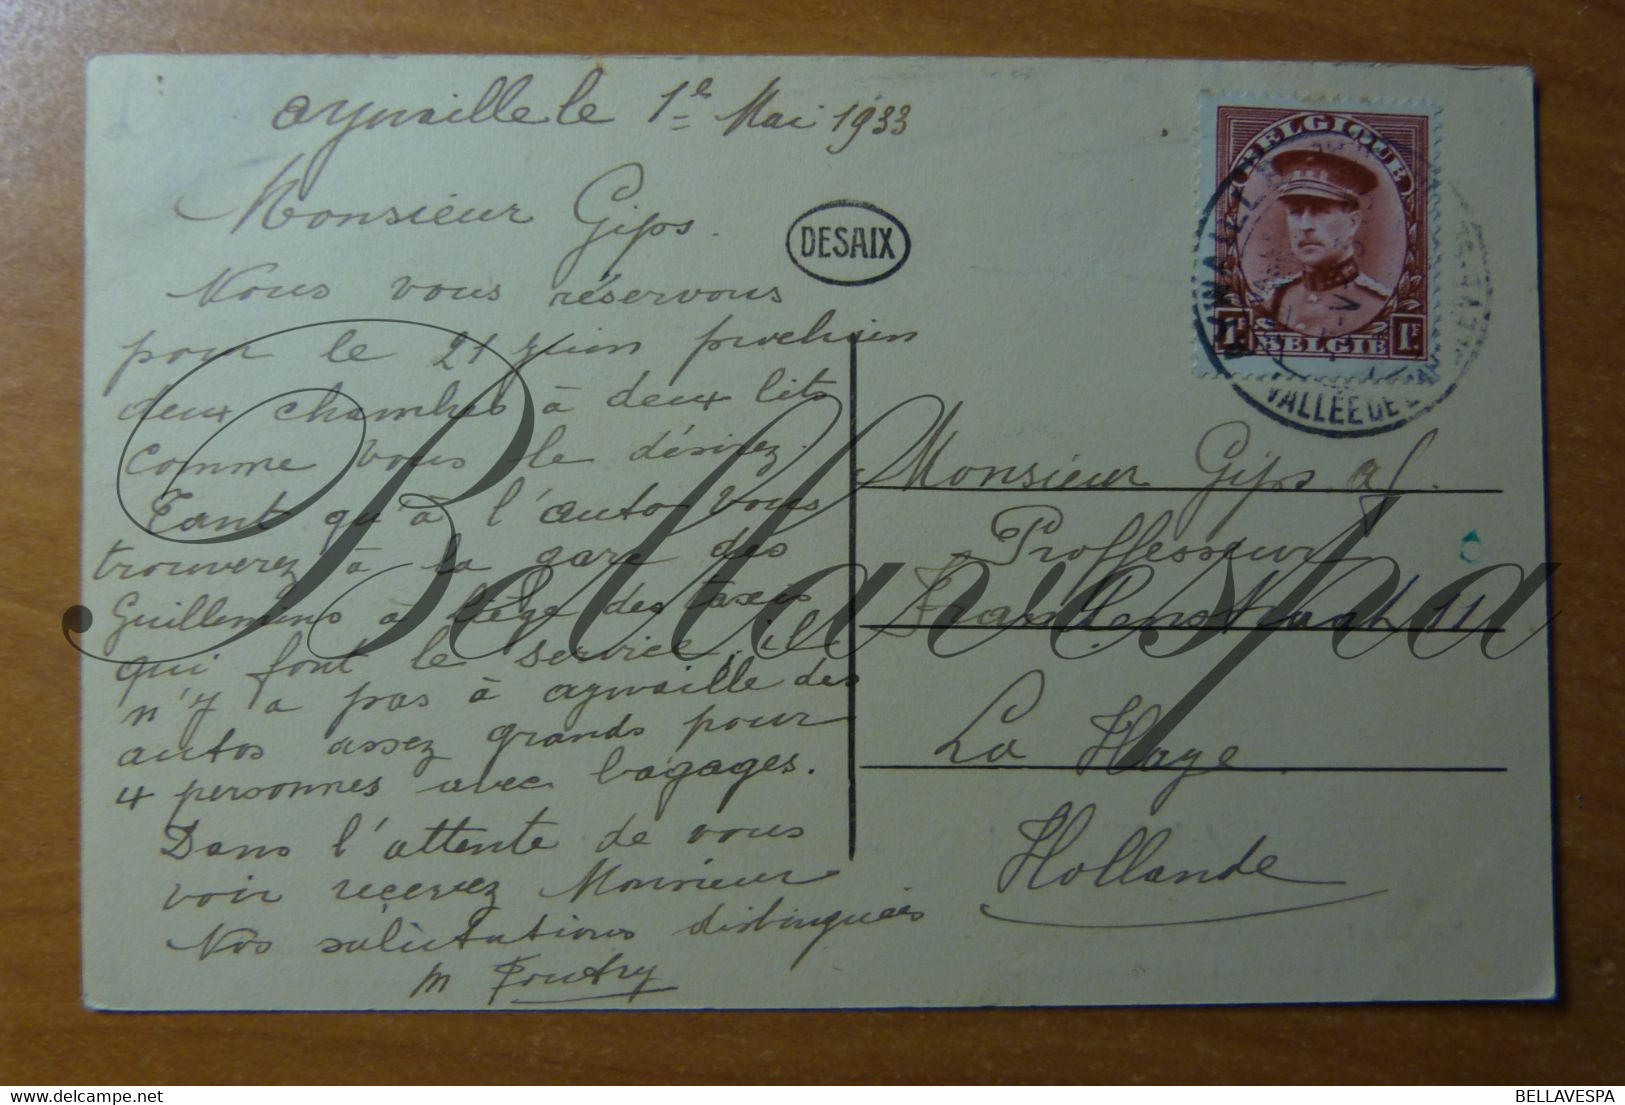 aywaille le 1e Mai 1933
Monsieur Gips.
Nous vous réservons
pour le 21 juin prochain
deux chambres à deux lits
comme vous le désirez.
Tant qu'à l'auto vous
trouverez à la gare des
Guillemins à Liège des taxis
qui font le service, il
n'y a pas à aywaille des
autos assez grands pour
4 personnes avec bagages.
Dans l'attente de vous
voir recevez Monsieur
Nos salutations distinguées
DESAIX
BELGIQUE
1F BELGIË 1F
VALLÉE DE L'AM
Monsieur Gips
Proffesseur
11
La Haye
Hollande
Bellavespa
BELLAVESPA